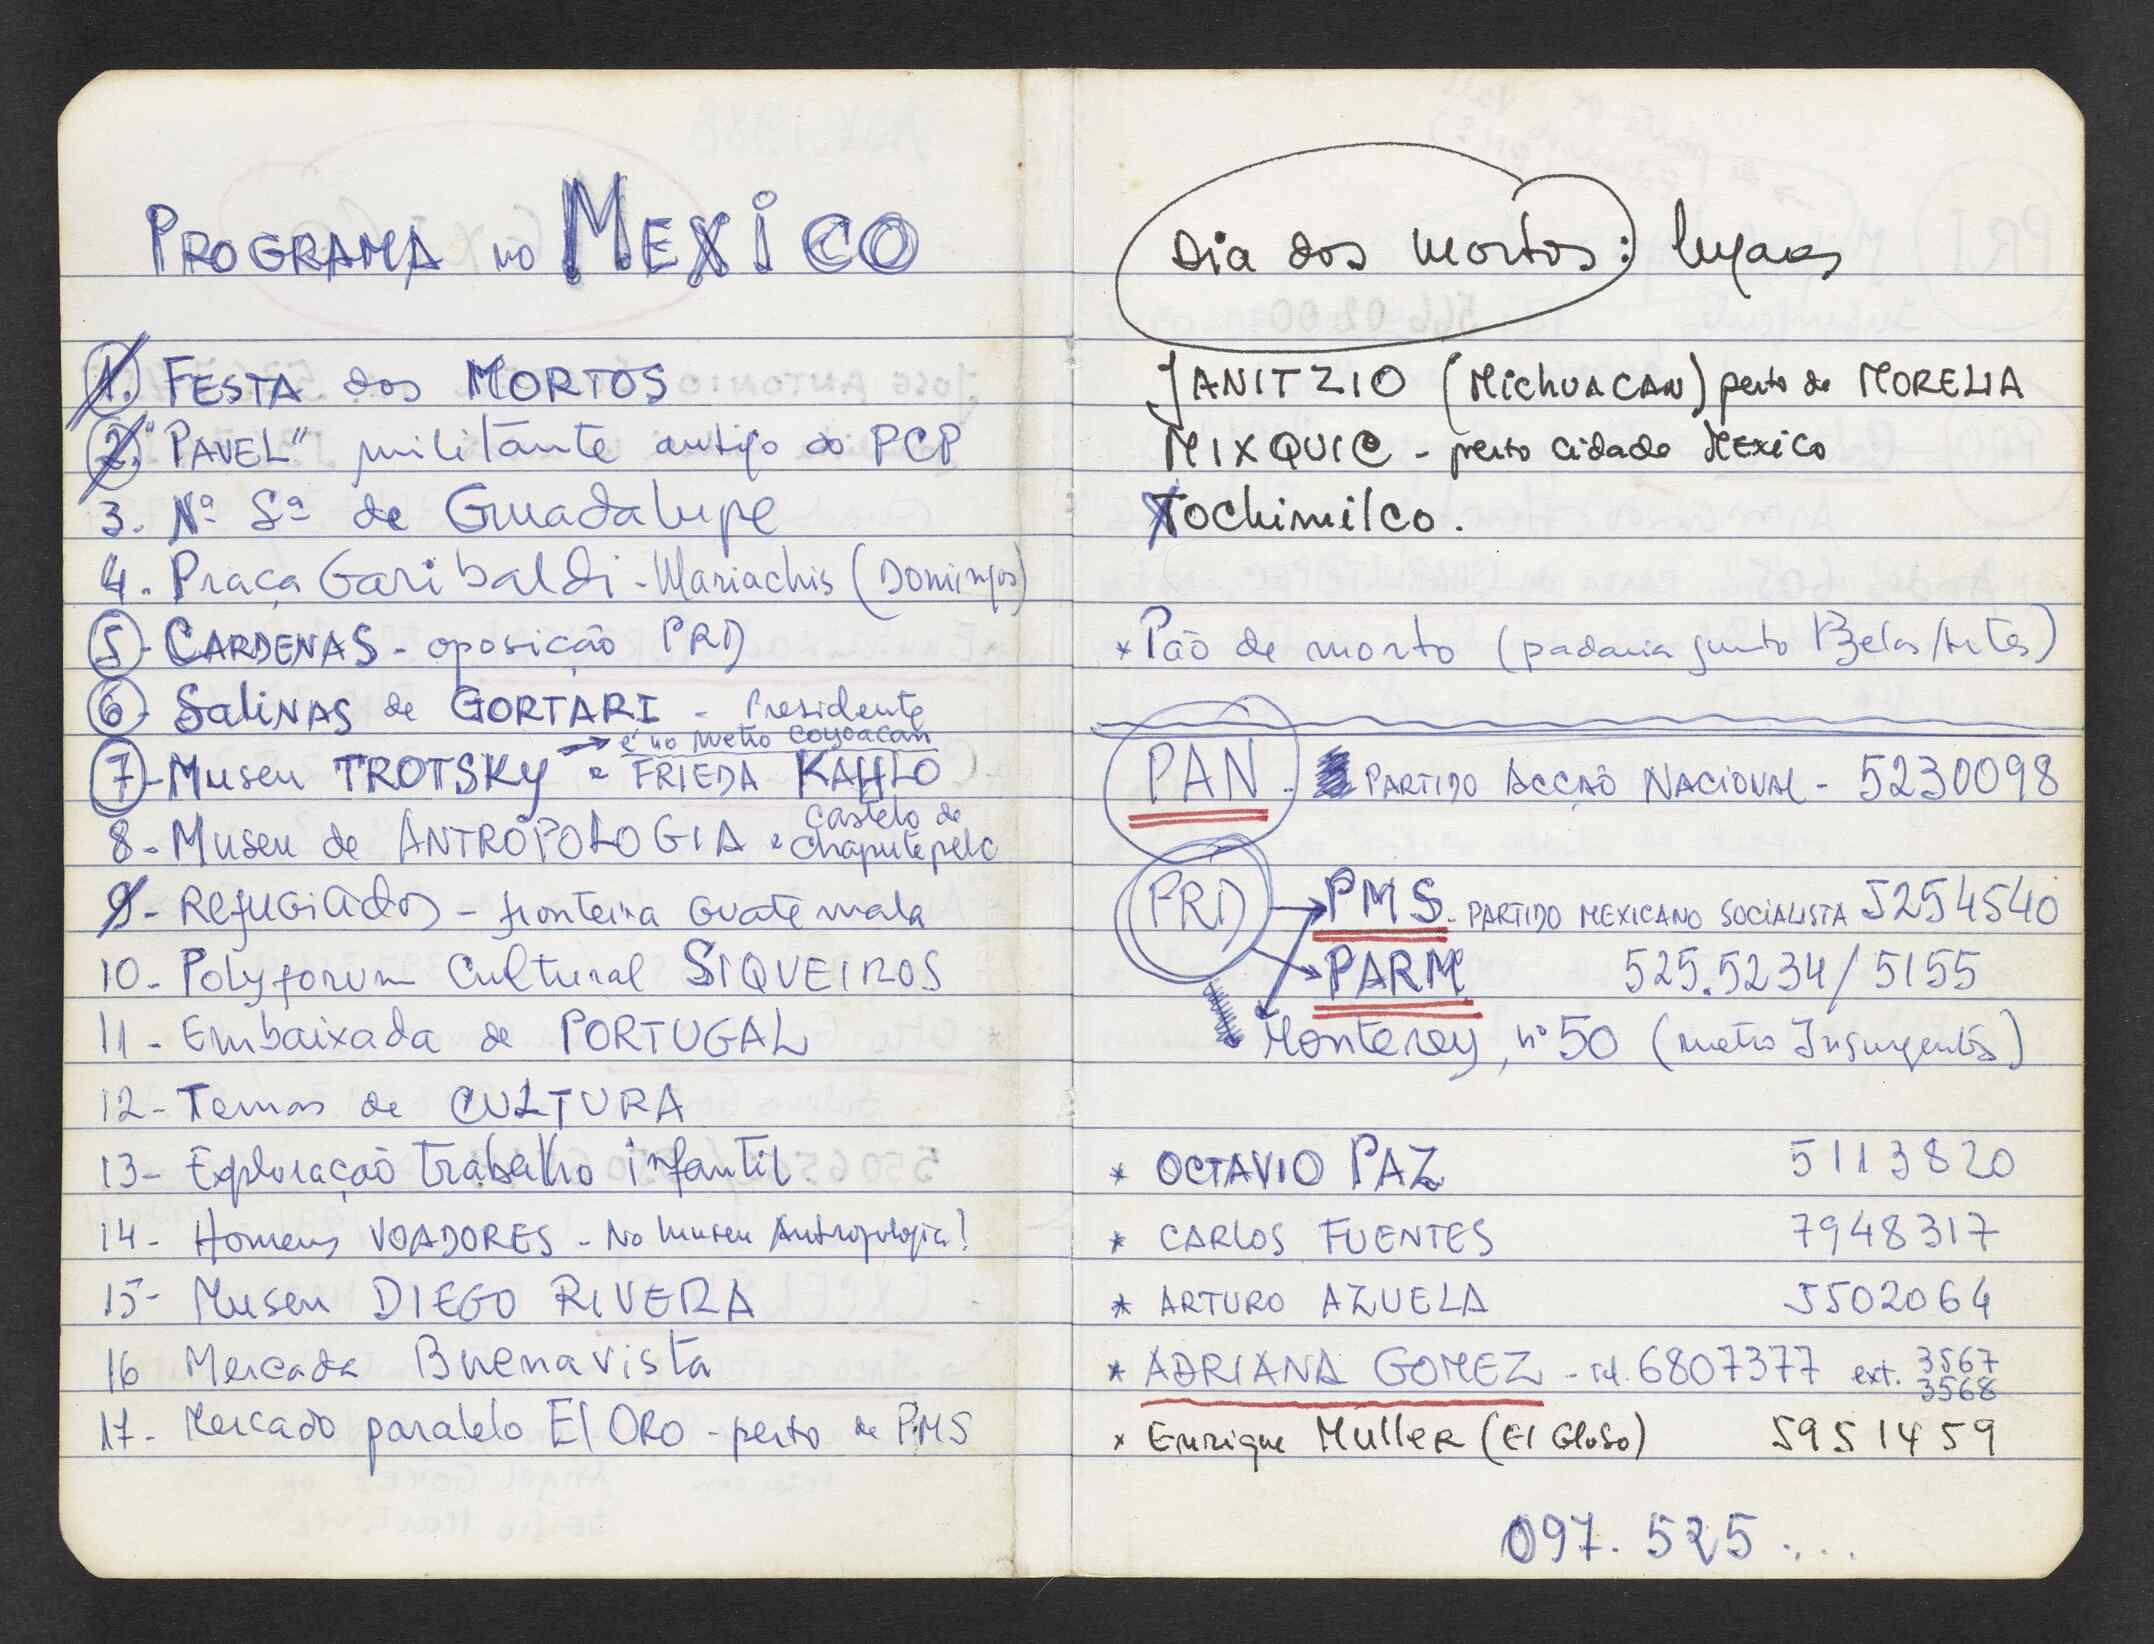 PROGRAMA no MEXICO
1. FESTA dos MORTOS
2. "PAVEL" militante antigo do PCP
3. Nª Sª de Guadalupe
4. Praça Garibaldi - Mariachis (Domingos)
5 - CARDENAS - oposição PRD
6 - Salinas de GORTARI - Presidente
é no metro Coyoacan
7 - Museu TROTSKY e FRIEDA KAHLO
8 - Museu de ANTROPOLOGIA e Castelo de Chapultepelc
9 - Refugiados - fronteira Guatemala
10 - Polyforum Cultural SIQVEIROS
11 - Embaixada de PORTUGAL
12 - Temas de CULTURA
13 - Exploração trabalho infantil
14 - Homens VOADORES - No Museu Antropologia!
15 - Museu DIEGO RIVERA
16 Mercado Buenavista
17 - Mercado paralelo El ORO - perto de PMS
Dia dos Mortos: lugares
JANITZIO (Michuacan) perto de MORELIA
MIXQUIC - perto cidade Mexico
Xochimilco.
* Pão de morto (padaria junto Belas Artes)
PAN - PARTIDO ACCAÕ NACIONAL - 5230098
PRD PMS - PARTIDO MEXICANO SOCIALISTA 5254540
PARM 525.5234/5155
Monterey, nº 50 (metro Insurgentes)
* OCTAVIO PAZ 5113820
* CARLOS FUENTES 7948317
* ARTURO AZUELA 5502064
* ADRIANA GOMEZ - tel. 6807377 ext. 3567 3568
* Enrique Muller (El Globo) 5951459
097. 525 ....